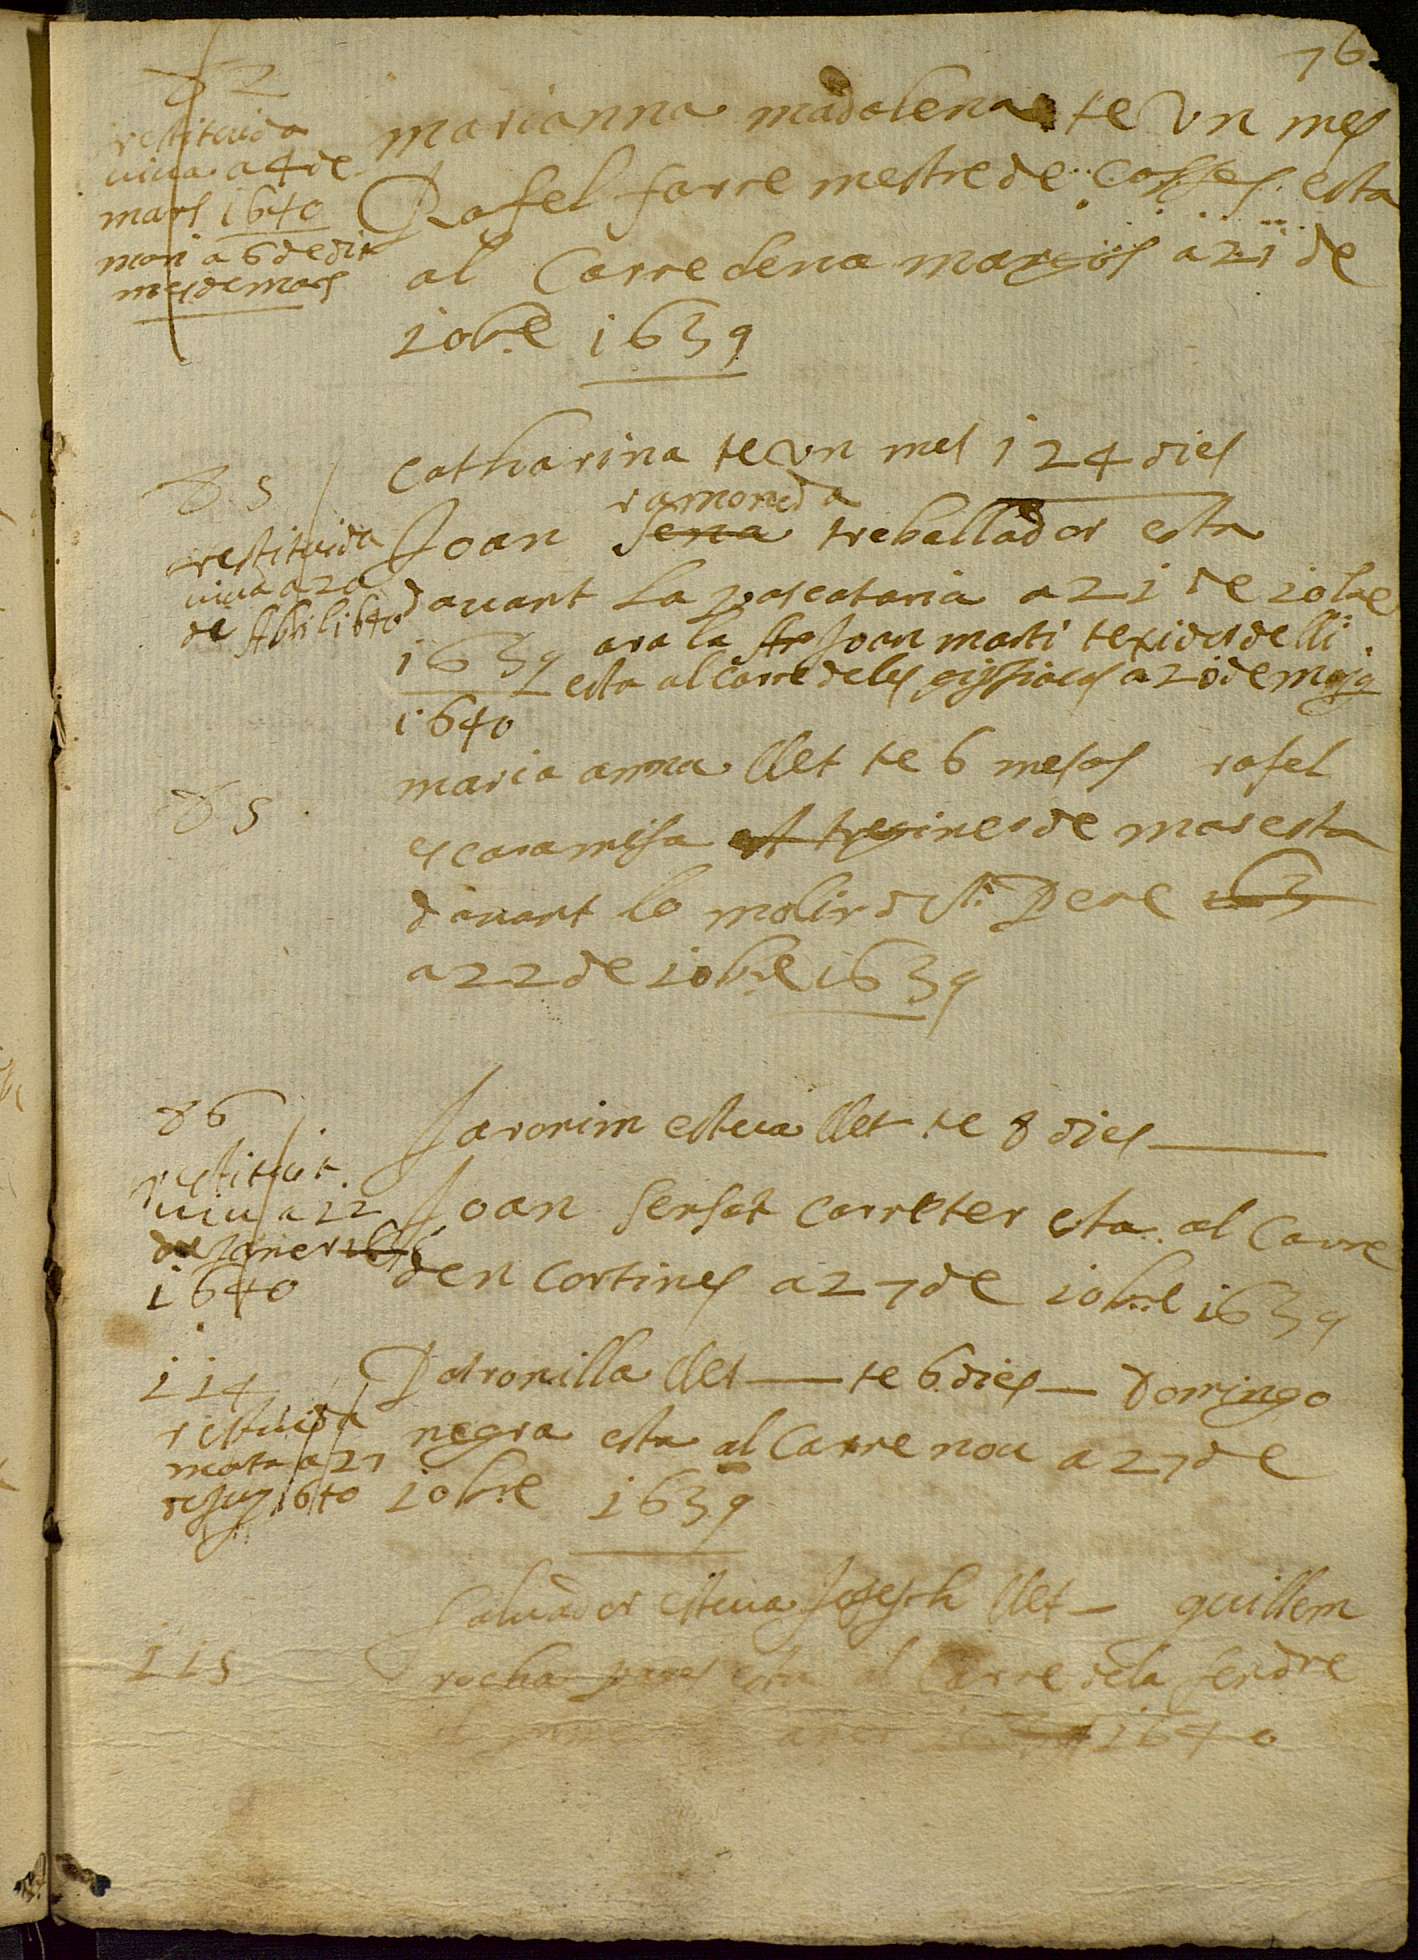 76
82
restituida
viva a 4 de
mars 1640
mori a 6 de dit
mes de mars
marianna madalena te un mes
Rafel farre mestre de cosses esta
al Carre dena mayos a 21 de
10bre 1639
85
restituida
viva a 20
de Abril 1640
Catharina te un mes i 24 dies
ramoneda
Joan sena treballador esta
davant la pascataria a 21 de 10bre
1639 ara la Joan marti texidor de lli
esta al Carre de les a 20 de
1640
85
maria anna llet te 6 mesos rafel
escaramisa treginer de mar esta
davant lo molir d St. Pere 163
a 22 de 10bre 1639
86
restituit
viu a 22
de Janer
1640
Jaronim esteva llet te 8 dies
Joan sersat carreter esta al Carre
den cortines a 27 de 10bre 1639
114
restuida
morta a 27
de 1640
Patronilla llet te 6 dies Domingo
negra esta al Carre nou a 27 de
10bre 1639
115
Salvador esteva Josesch llet guillem
rocha esta al Carre de la
1640